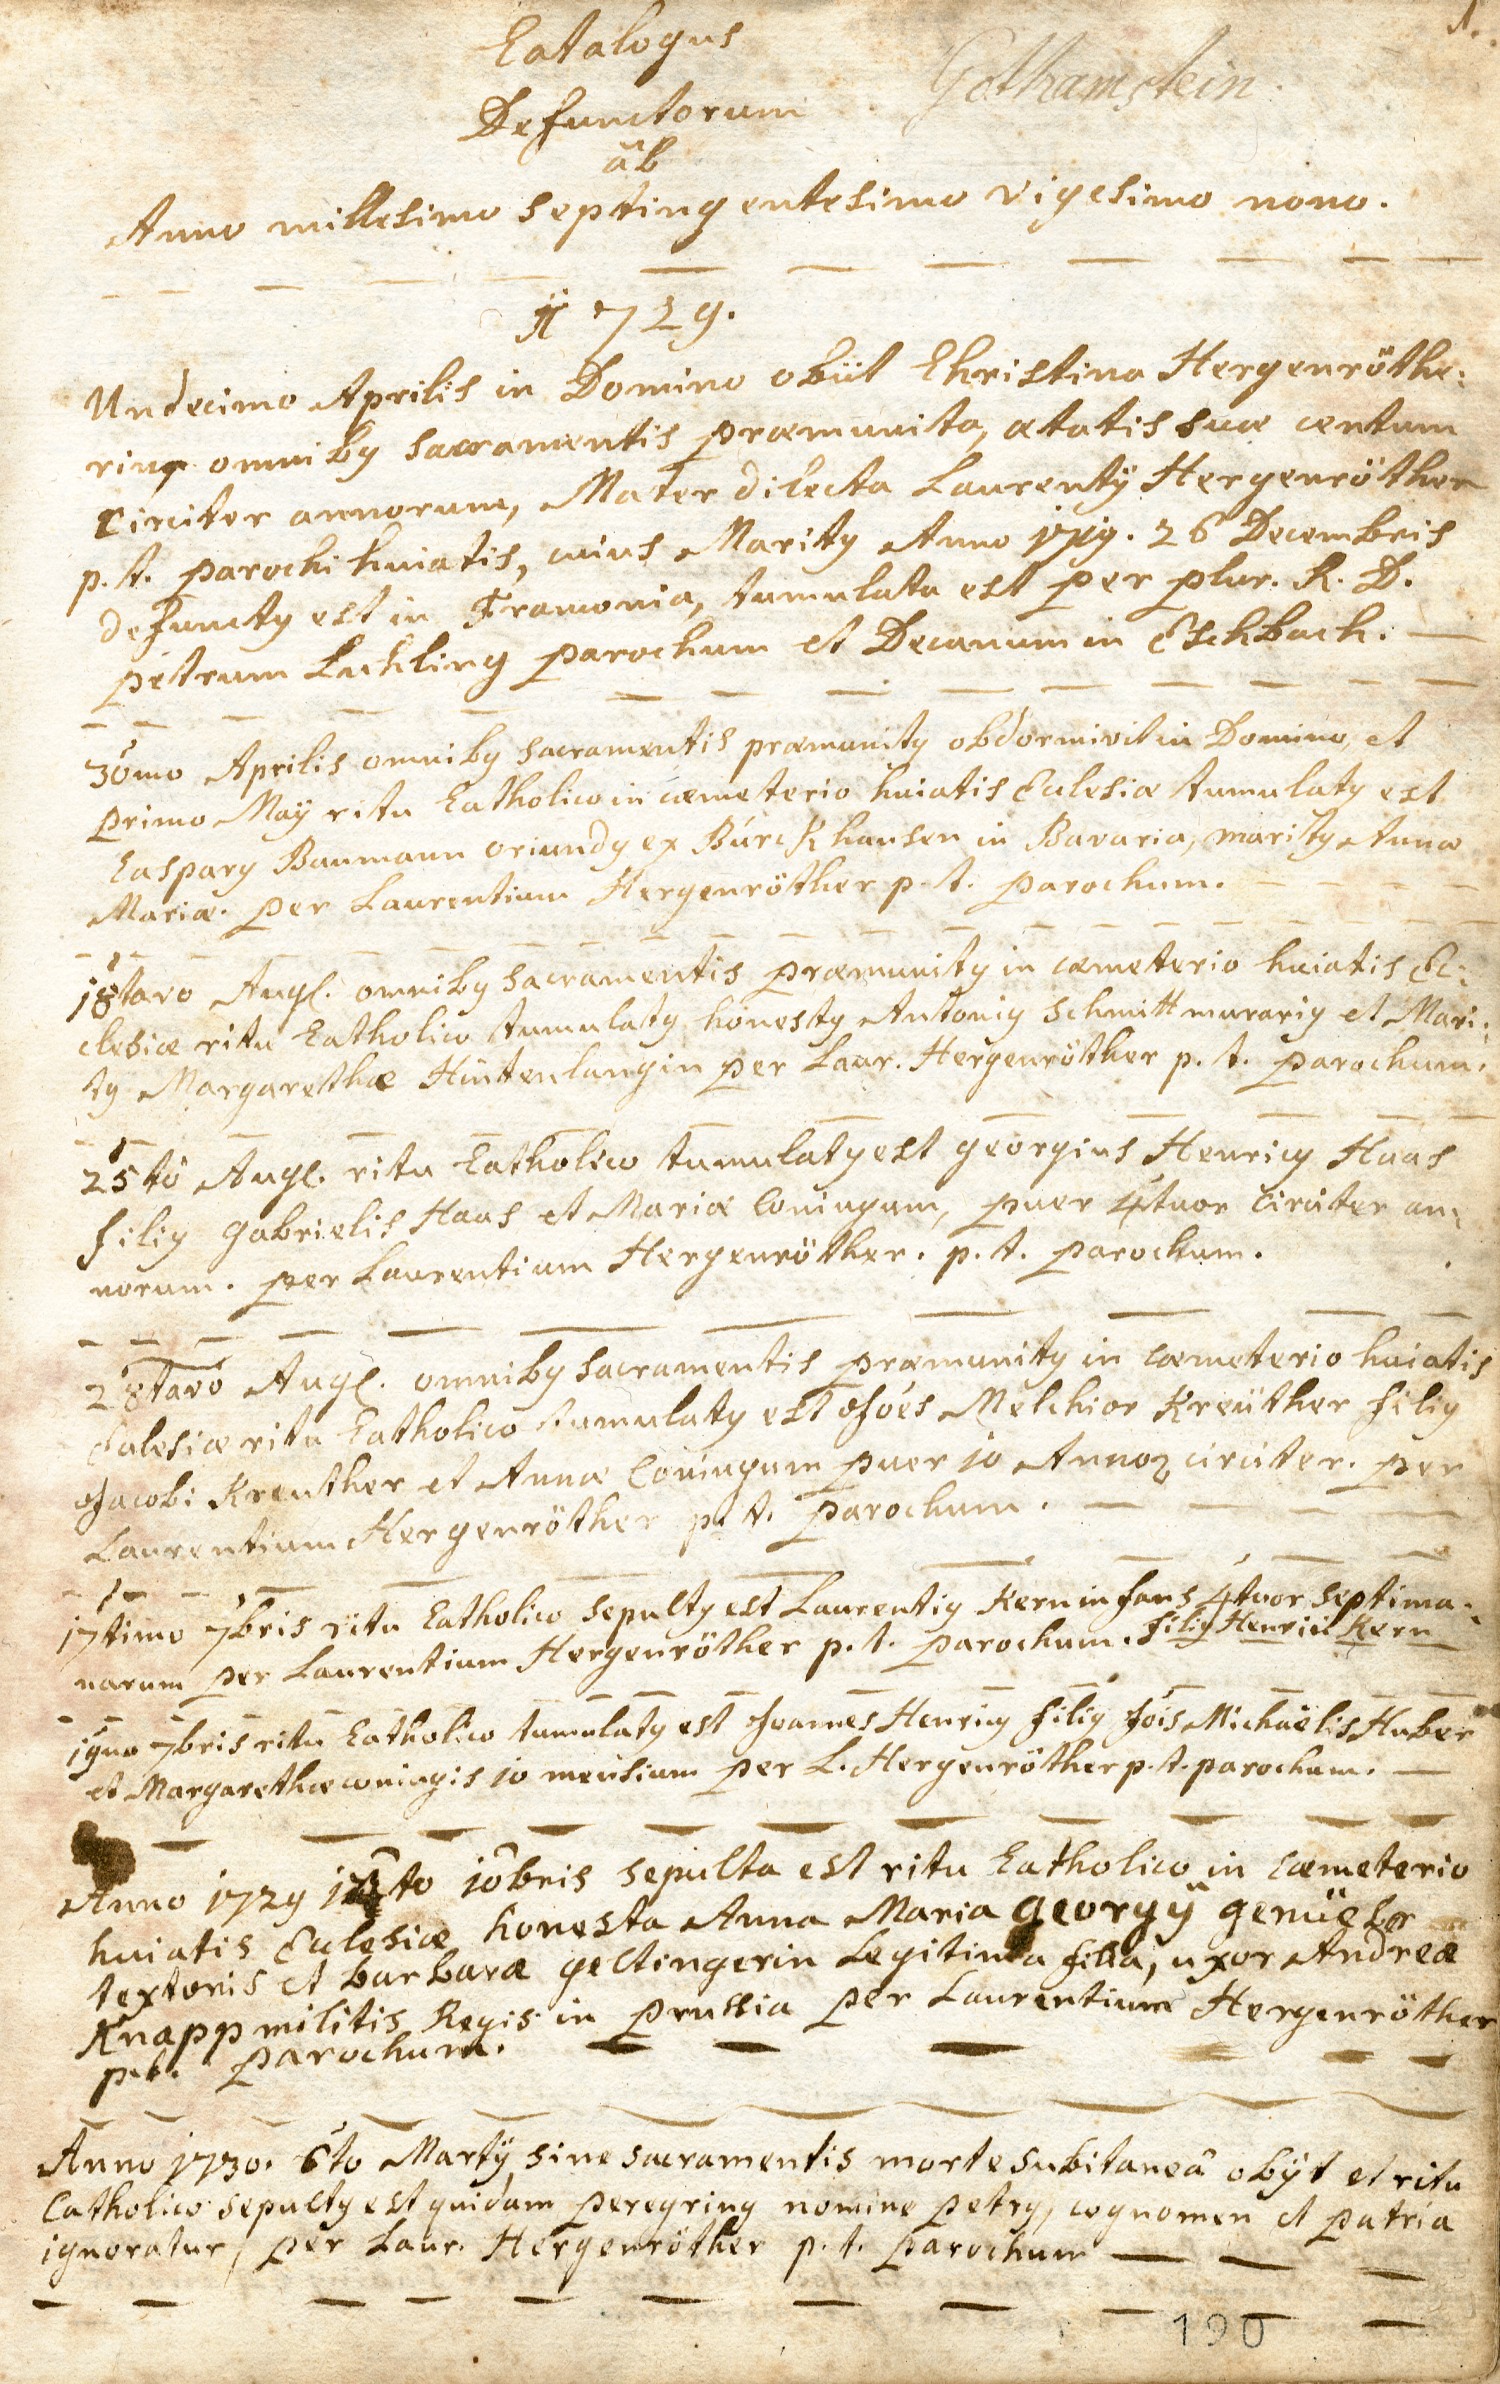 1.
Catalogus
Gothamstein.
Defunctorum
âb
Anno millesimo septingentesimo vigesimo nono.
1729.
Undecimo Aprilis in Domino obiit Christina Hergenröthe:
rinn omniby sacramentis præmunita, ætatis suæ centum
circiter annorum, Mater dilecta Laurentÿ Hergenröther
p. t. parochi huiatis, cuius Marity Anno 1719. 26 Decembris
defuncty est in Franconia, tumulata est per plur. R. D.
petrum Luhling parochum et Decanum in Eschbach.
30mo Aprilis omniby sacramentis præmunity obdormivit in Domino, et
primo Maÿ ritu Catholico in cæmeterio huiatis Eclesiæ tumulaty est
Caspary Baumann oriundy ex Burckhausen in Bavaria, marity Annæ
Mariæ. per Laurentium Hergenröther p. t. parochum.
18tavo Augl. omniby sacramentis præmunity in cæmeterio huiatis Ec:
clesiæ ritu Catholico tumulaty honesty Antoniy Schmitt murariy et Mari:
ty Margarethæ Hintenlangin per Laur. Hergenröther p. t. parochum.
25tô Augl. ritu Catholico tumulaty est georgius Henricy Haas
filiy gabrielis Haas et Mariæ Coniugum, puer 4tuor circiter an:
norum. per Laurentium Hergenröther. p. t. parochum.
28tavo Augl. omniby sacramentis præmunity in Cæmeterio huiatis
Eclesiæ ritu Catholico tumulaty est Joês Melchior Kreüther filiy
Jacobi Kreuther et Annæ Coniugum puer 10 Annoꝝ circiter. per
Laurentium Hergenröther p. t. parochum.
17timo 7bris ritu Catholico sepulty est Laurentiy Kern infans 4tuor septima:
narum per Laurentium Hergenröther p. t. parochum. filiy Henrici Kern
19no 7bris ritu Catholico tumulaty est Joannes Henricy filiy Jôis Michaëlis Huber
et Margarethæ coniugis 10 mensium per L. Hergenröther p. t. parochum.
Anno 1729 to 10bris sepulta est ritu Catholico in cæmeterio
huiatis Eclesiæ honesta Anna Maria georgÿ
textoris et barbaræ geltingerin Legitima filia, uxor Andreæ
Knapp militis Regis in prussia per Laurentium Hergenröther
p. t. parochum.
Anno 1730. 6to Martÿ sine sacramentis morte subitaneâ obÿt et ritu
Catholico sepulty est quidam peregriny nomine petry, cognomen et patria
ignoratur, per Laur. Hergenröther p. t. parochum
190